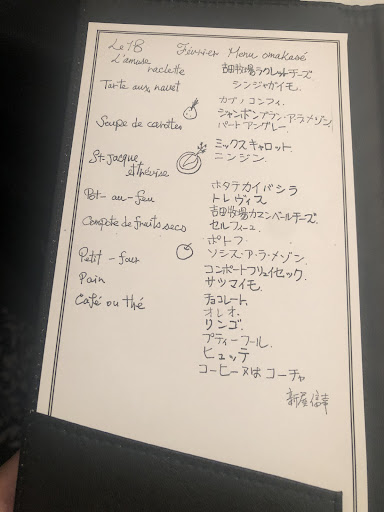 Le 18 Février Menu omakasé
L'amuse
raclette 吉田牧場ラクレットチーズ
シンジャガイモ.
Tarte aux navet
カブ ノ コンフィ.
ジャンボンブラン・アラ・メゾン.
Soupe de carottes パートアングレー.
ミックスキャロット.
St jacque ニンジン.
et trévise
ホタテカイバシラ
Pot-au-feu トレヴィス
吉田牧場カマンベールチーズ.
Compote de fruits secs セルフィーユ.
ポトフ
ソシス・ア・ラ・メゾン.
Petit-four コンポートフリュイセック.
Pain サツマイモ.
Café ou thé チョコレート.
オレオ.
リンゴ.
プティーフール.
ヒュッテ
コーヒーヌは コーチャ